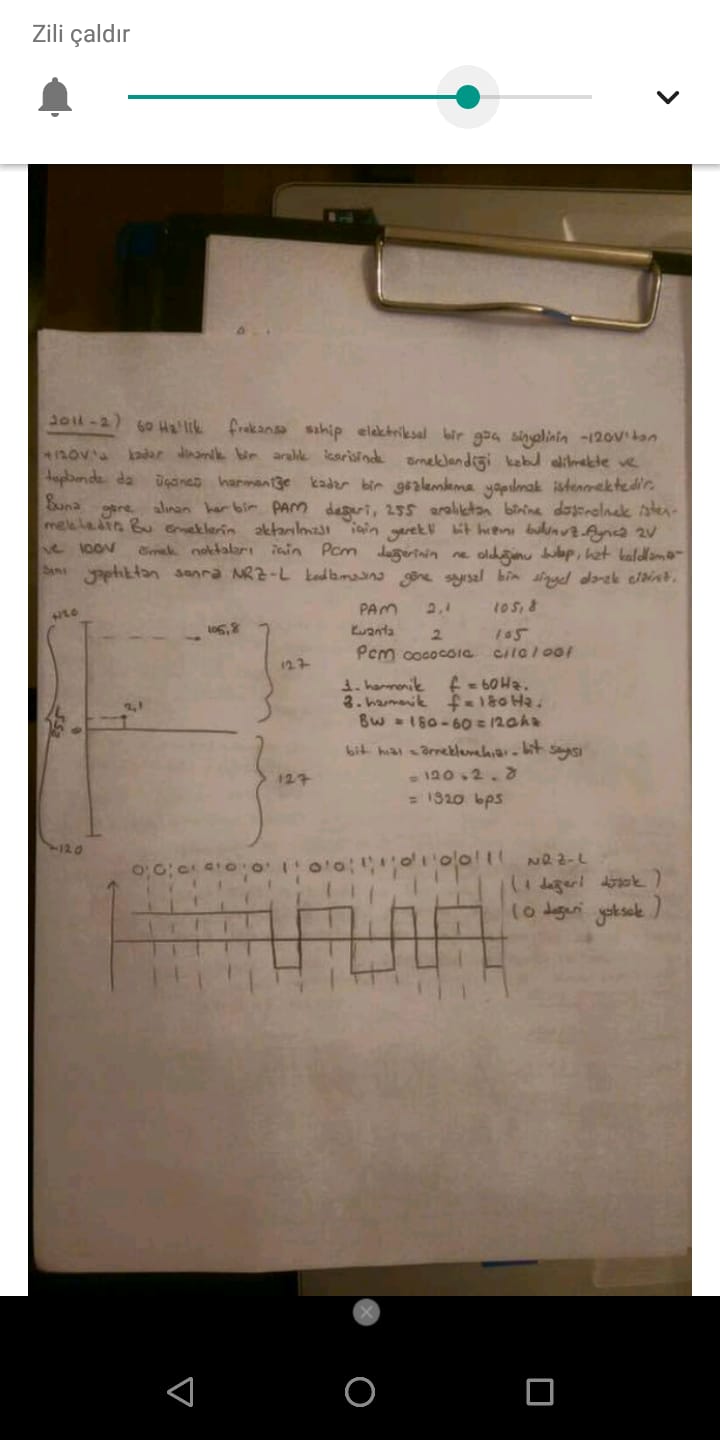 Zili çaldır
2011-2) 60 Hz'lik frekansa sahip elektriksel bir güç sinyalinin -120V'tan
+120V'a kadar dinamik bir aralık içerisinde örneklendiği kabul edilmekte ve
toplamda da üçüncü harmoniğe kadar bir gözlemleme yapılmak istenmektedir.
Buna göre alınan her bir PAM değeri, 255 aralıktan birine dönüştürülmek isten-
mektedir. Bu örneklerin aktarılması için gerekli bit hızını bulunuz. Ayrıca 2V
ve 100V örnek noktaları için Pcm değerinin ne olduğunu bulup, hat kodlama-
sını yaptıktan sonra NRZ-L kodlamasına göre sayısal bir sinyal olarak çiziniz.
PAM 2,1 105,8
Kuanta 2 105
Pcm 00000010 01101001
1. harmonik f = 60Hz.
3. harmonik f = 180Hz.
BW = 180-60 = 120Hz
bit hızı = örnekleme hızı . bit sayısı
= 120 . 2 . 8
= 1920 bps
+120
105,8
127
2,1
255
0
127
-120
0 0 0 0 0 0 1 0 0 1 1 0 1 0 0 1 NRZ-L
(1 değeri düşük)
(0 değeri yüksek)